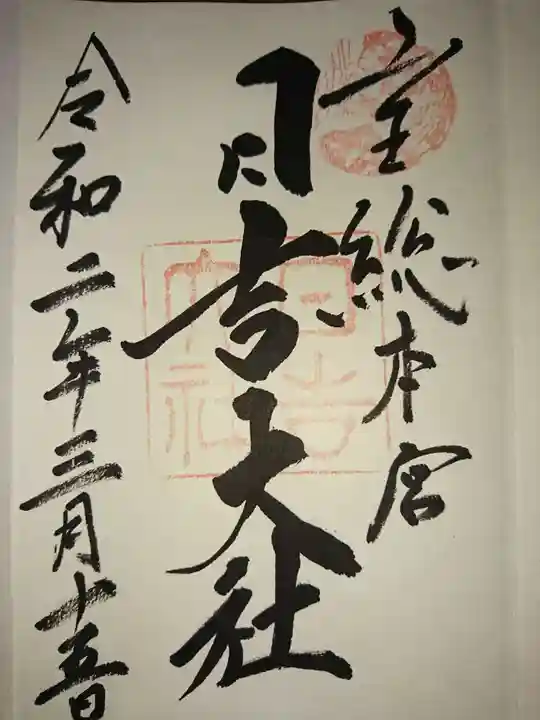 全総本宮
日吉大社
令和二年三月十五日
日吉大社